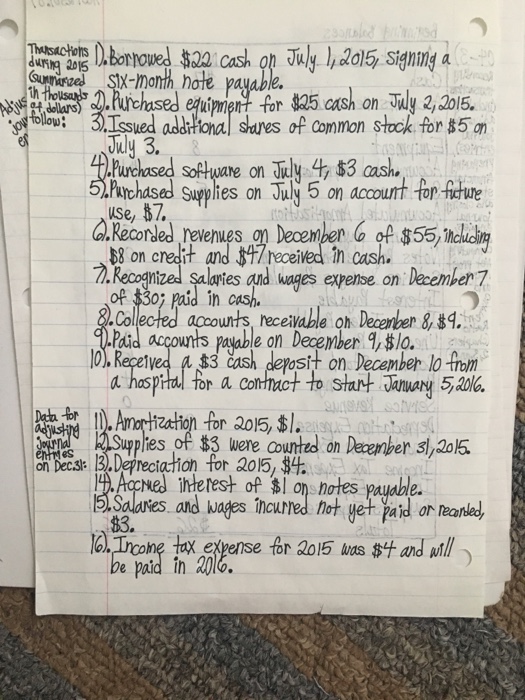 Transactions during 2015 (Summarized in thousands of dollars) follow:
1). Borrowed $22 cash on July 1, 2015, signing a
six-month note payable.
2). Purchased equipment for $25 cash on July 2, 2015.
3). Issued additional shares of common stock for $5 on
July 3.
4). Purchased software on July 4, $3 cash.
5). Purchased supplies on July 5 on account for future
use, $7.
6). Recorded revenues on December 6 of $55, including
$8 on credit and $47 received in cash.
7). Recognized salaries and wages expense on December 7
of $30; paid in cash.
8). Collected accounts receivable on December 8, $9.
9). Paid accounts payable on December 9, $10.
10). Received a $3 cash deposit on December 10 from
a hospital for a contract to start January 5, 2016.
Data for adjusting journal entries on Dec. 31:
11). Amortization for 2015, $1.
12). Supplies of $3 were counted on December 31, 2015.
13). Depreciation for 2015, $4.
14). Accrued interest of $1 on notes payable.
15). Salaries and wages incurred not yet paid or recorded,
$3.
16). Income tax expense for 2015 was $4 and will
be paid in 2016.